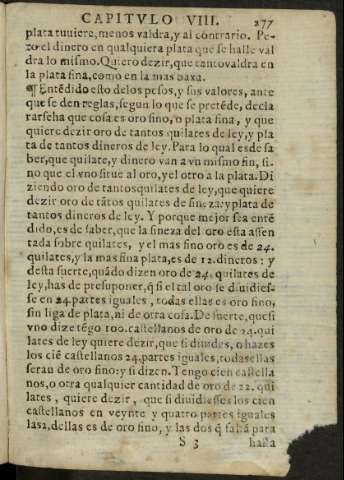 CAPITVLO VIII. 277
plata tuuiere, menos valdra, y al contrario. Pe-
ro el dinero en qualquiera plata que se halle val
dra lo mismo. Quiero dezir, que tanto valdra en
la plata fina, como en la mas baxa.
¶ Entēdido esto de los pesos, y sus valores, ante
que se den reglas, segun lo que se pretēde, decla
rarseha que cosa es oro fino, o plata fina, y que
quiere dezir oro de tantos quilates de ley, y pla
ta de tantos dineros de ley. Para lo qual es de sa
ber, que quilate, y dinero van a vn mismo fin, si-
no que el vno sirue al oro, y el otro a la plata. Di
ziendo oro de tantos quilates de ley, que quiere
dezir oro de tātos quilates de fineza: y plata de
tantos dineros de ley. Y porque mejor sea entē
dido, es de saber, que la fineza del oro esta assen
tada sobre quilates, y el mas fino oro es de 24.
quilates, y la mas fina plata, es de 12. dineros: y
desta suerte, quādo dizen oro de 24. quilates de
ley, has de presuponer, q̄ si el tal oro se diuidies-
se en 24. partes iguales, todas ellas es oro fino,
sin liga de plata, ni de otra cosa. De suerte, que si
vno dize tēgo 100. castellanos de oro de 24. qui
lates de ley quiere dezir, que si diuides, o hazes
los ciē castellanos 24. partes iguales, todas ellas
seran de oro fino: y si dizen. Tengo cien castella
nos, o otra qualquier cantidad de oro de 22. qui
lates, quiere dezir, que si diuidiesses los cien
castellanos en veynte y quatro partes iguales
las 22. dellas es de oro fino, y las dos q̄ faltā para
S 3 hasta